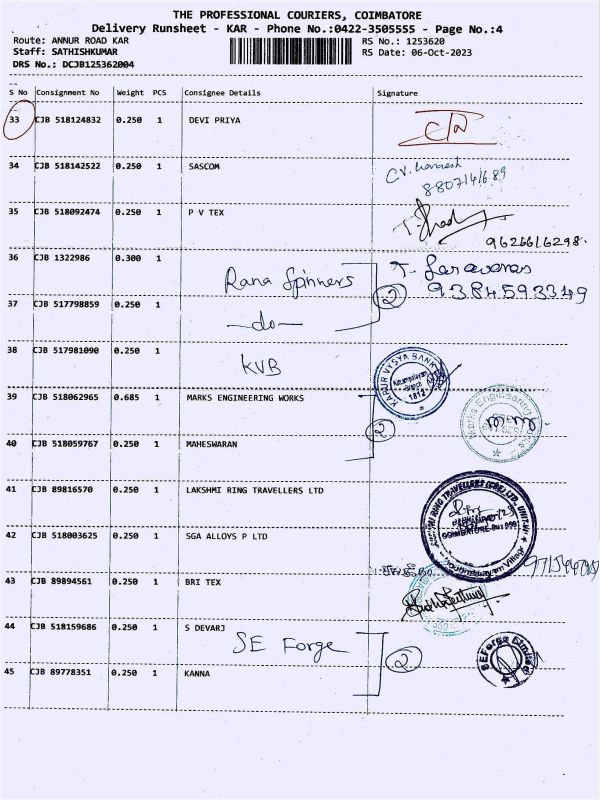 THE PROFESSIONAL COURIERS, COIMBATORE
Delivery Runsheet - KAR - Phone No.:0422-3505555 - Page No.:4
Route: ANNUR ROAD KAR RS No.: 1253620
Staff: SATHISHKUMAR RS Date: 06-Oct-2023
DRS No.: DCJB125362004
S No Consignment No Weight PCS Consignee Details Signature
33 CJB 518124832 0.250 1 DEVI PRIYA
34 CJB 518142522 0.250 1 SASCOM
8807141689
35 CJB 518092474 0.250 1 P V TEX
9626616298.
36 CJB 1322986 0.300 1
Rana Spinners 2 T. Saravanas
9384593349
37 CJB 517798859 0.250 1
-do-
38 CJB 517981090 0.250 1
KVB KARUR VYSYA BANK
Branch
1812
39 CJB 518062965 0.685 1 MARKS ENGINEERING WORKS
2 Marks Engineering Works
40 CJB 518059767 0.250 1 MAHESWARAN
41 CJB 89816570 0.250 1 LAKSHMI RING TRAVELLERS LTD
RING TRAVELLERS (CBE) LTD., UNIT
COIMBATORE
42 CJB 518003625 0.250 1 SGA ALLOYS P LTD
43 CJB 89894561 0.250 1 BRI TEX
44 CJB 518159686 0.250 1 S DEVARJ
SE Forge 2 SE Forge Limited
45 CJB 89778351 0.250 1 KANNA